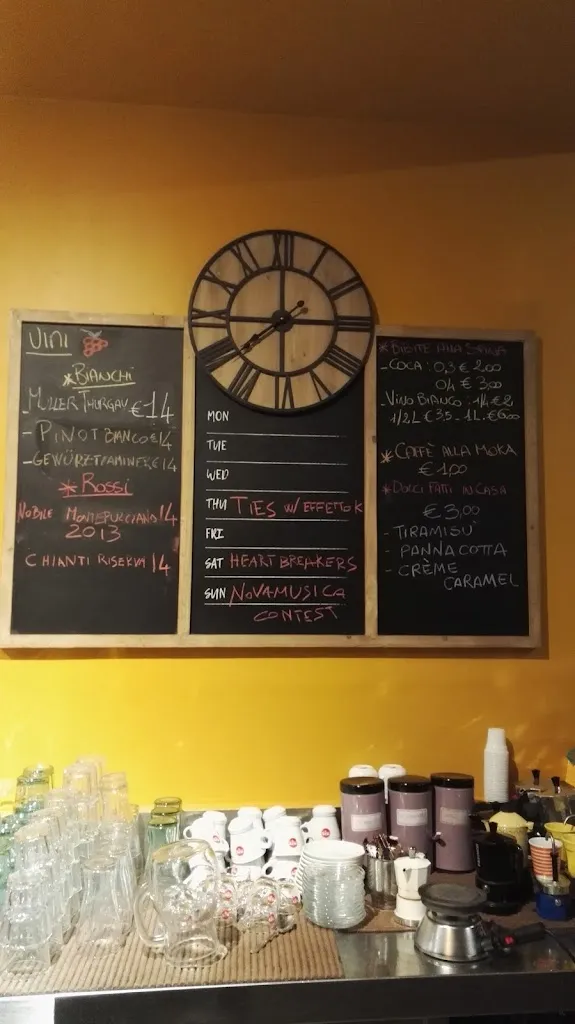 VINI
*BIANCHI
-MÜLLER THURGAU €14
-PINOT BIANCO €14
-GEWÜRZTRAMINER €14
*ROSSI
NOBILE MONTEPULCIANO 14
2013
CHIANTI RISERVA 14
MON
TUE
WED
THU TIES W/ EFFETTO K
FRI
SAT HEARTBREAKERS
SUN NOVAMUSICA
CONTEST
*BIBITE ALLA SPINA
-COCA: 0,3 € 2,00
0,4 € 3,00
-VINO BIANCO: 1/4 € 2
1/2 L € 3,5 - 1L. € 6,00
*CAFFÈ ALLA MOKA
€ 1,00
*DOLCI FATTI IN CASA
€ 3,00
- TIRAMISU'
- PANNA COTTA
- CRÈME
CARAMEL